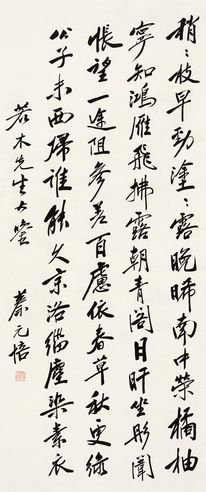 稍〻枝早勁塗〻露晚晞南中榮橘柚
寧知鴻雁飛拂露朝青閣日旰坐彤闈
悵望一途阻參差百慮依春草秋更綠
公子未西歸誰能久京洛緇塵染素衣
若木先生大鑒
蔡元培